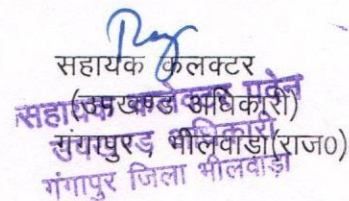 सहायक कलक्टर
(उपखण्ड अधिकारी)
गंगापुर, भीलवाडा(राज०)
सहायक कलेक्टर एवं
उपखण्ड अधिकारी
गंगापुर जिला भीलवाड़ा